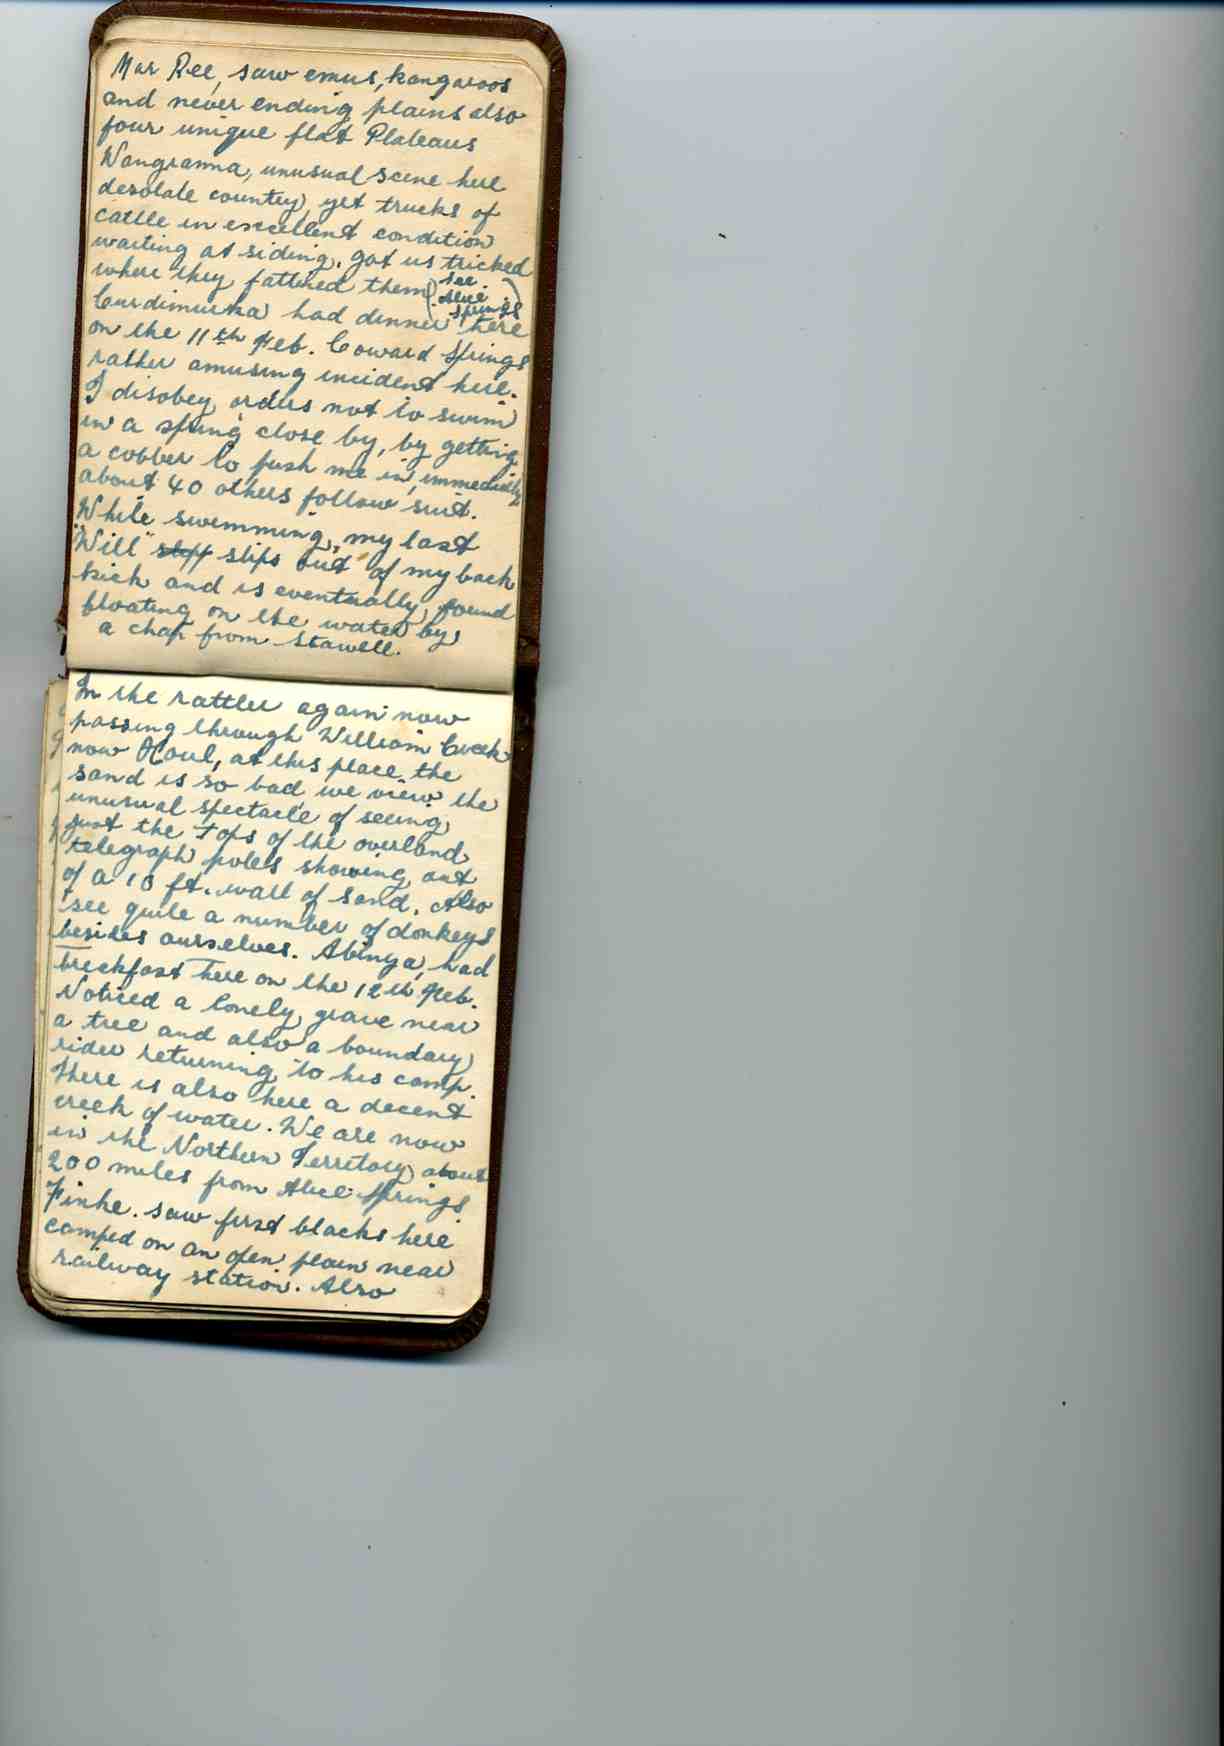 Mar Ree, saw emus, kangaroos
and never ending plains also
four unique flat Plateaus
Wangianna, unusual scene here
desolate country, yet trucks of
cattle in excellent condition
waiting at siding, got us tricked
where they fattned them (see Alice Springs)
Curdimurka had dinner here
on the 11th Feb. Coward Springs
rather amusing incident here.
I disobey orders not to swim
in a spring close by, by getting
a cobber to push me in, immediatly
about 40 others follow suit.
While swimming, my last
"Will" slips out of my back
kick and is eventually found
floating on the water by
a chap from Stawell.
In the rattler again now
passing through William Creek
now at this place the
sand is so bad we view the
unusual spectacle of seeing
just the tops of the overland
telegraph poles showing out
of a 10 ft. wall of sand. Also
see quite a number of donkeys
besides ourselves. Abinga, had
breckfast here on the 12th Feb.
Noticed a lonely grave near
a tree and also a boundary
rider returning to his camp.
There is also here a decent
creek of water. We are now
in the Northern Territory about
200 miles from Alice Springs
Finke. saw first blacks here
camped on an open plain near
railway station. Also